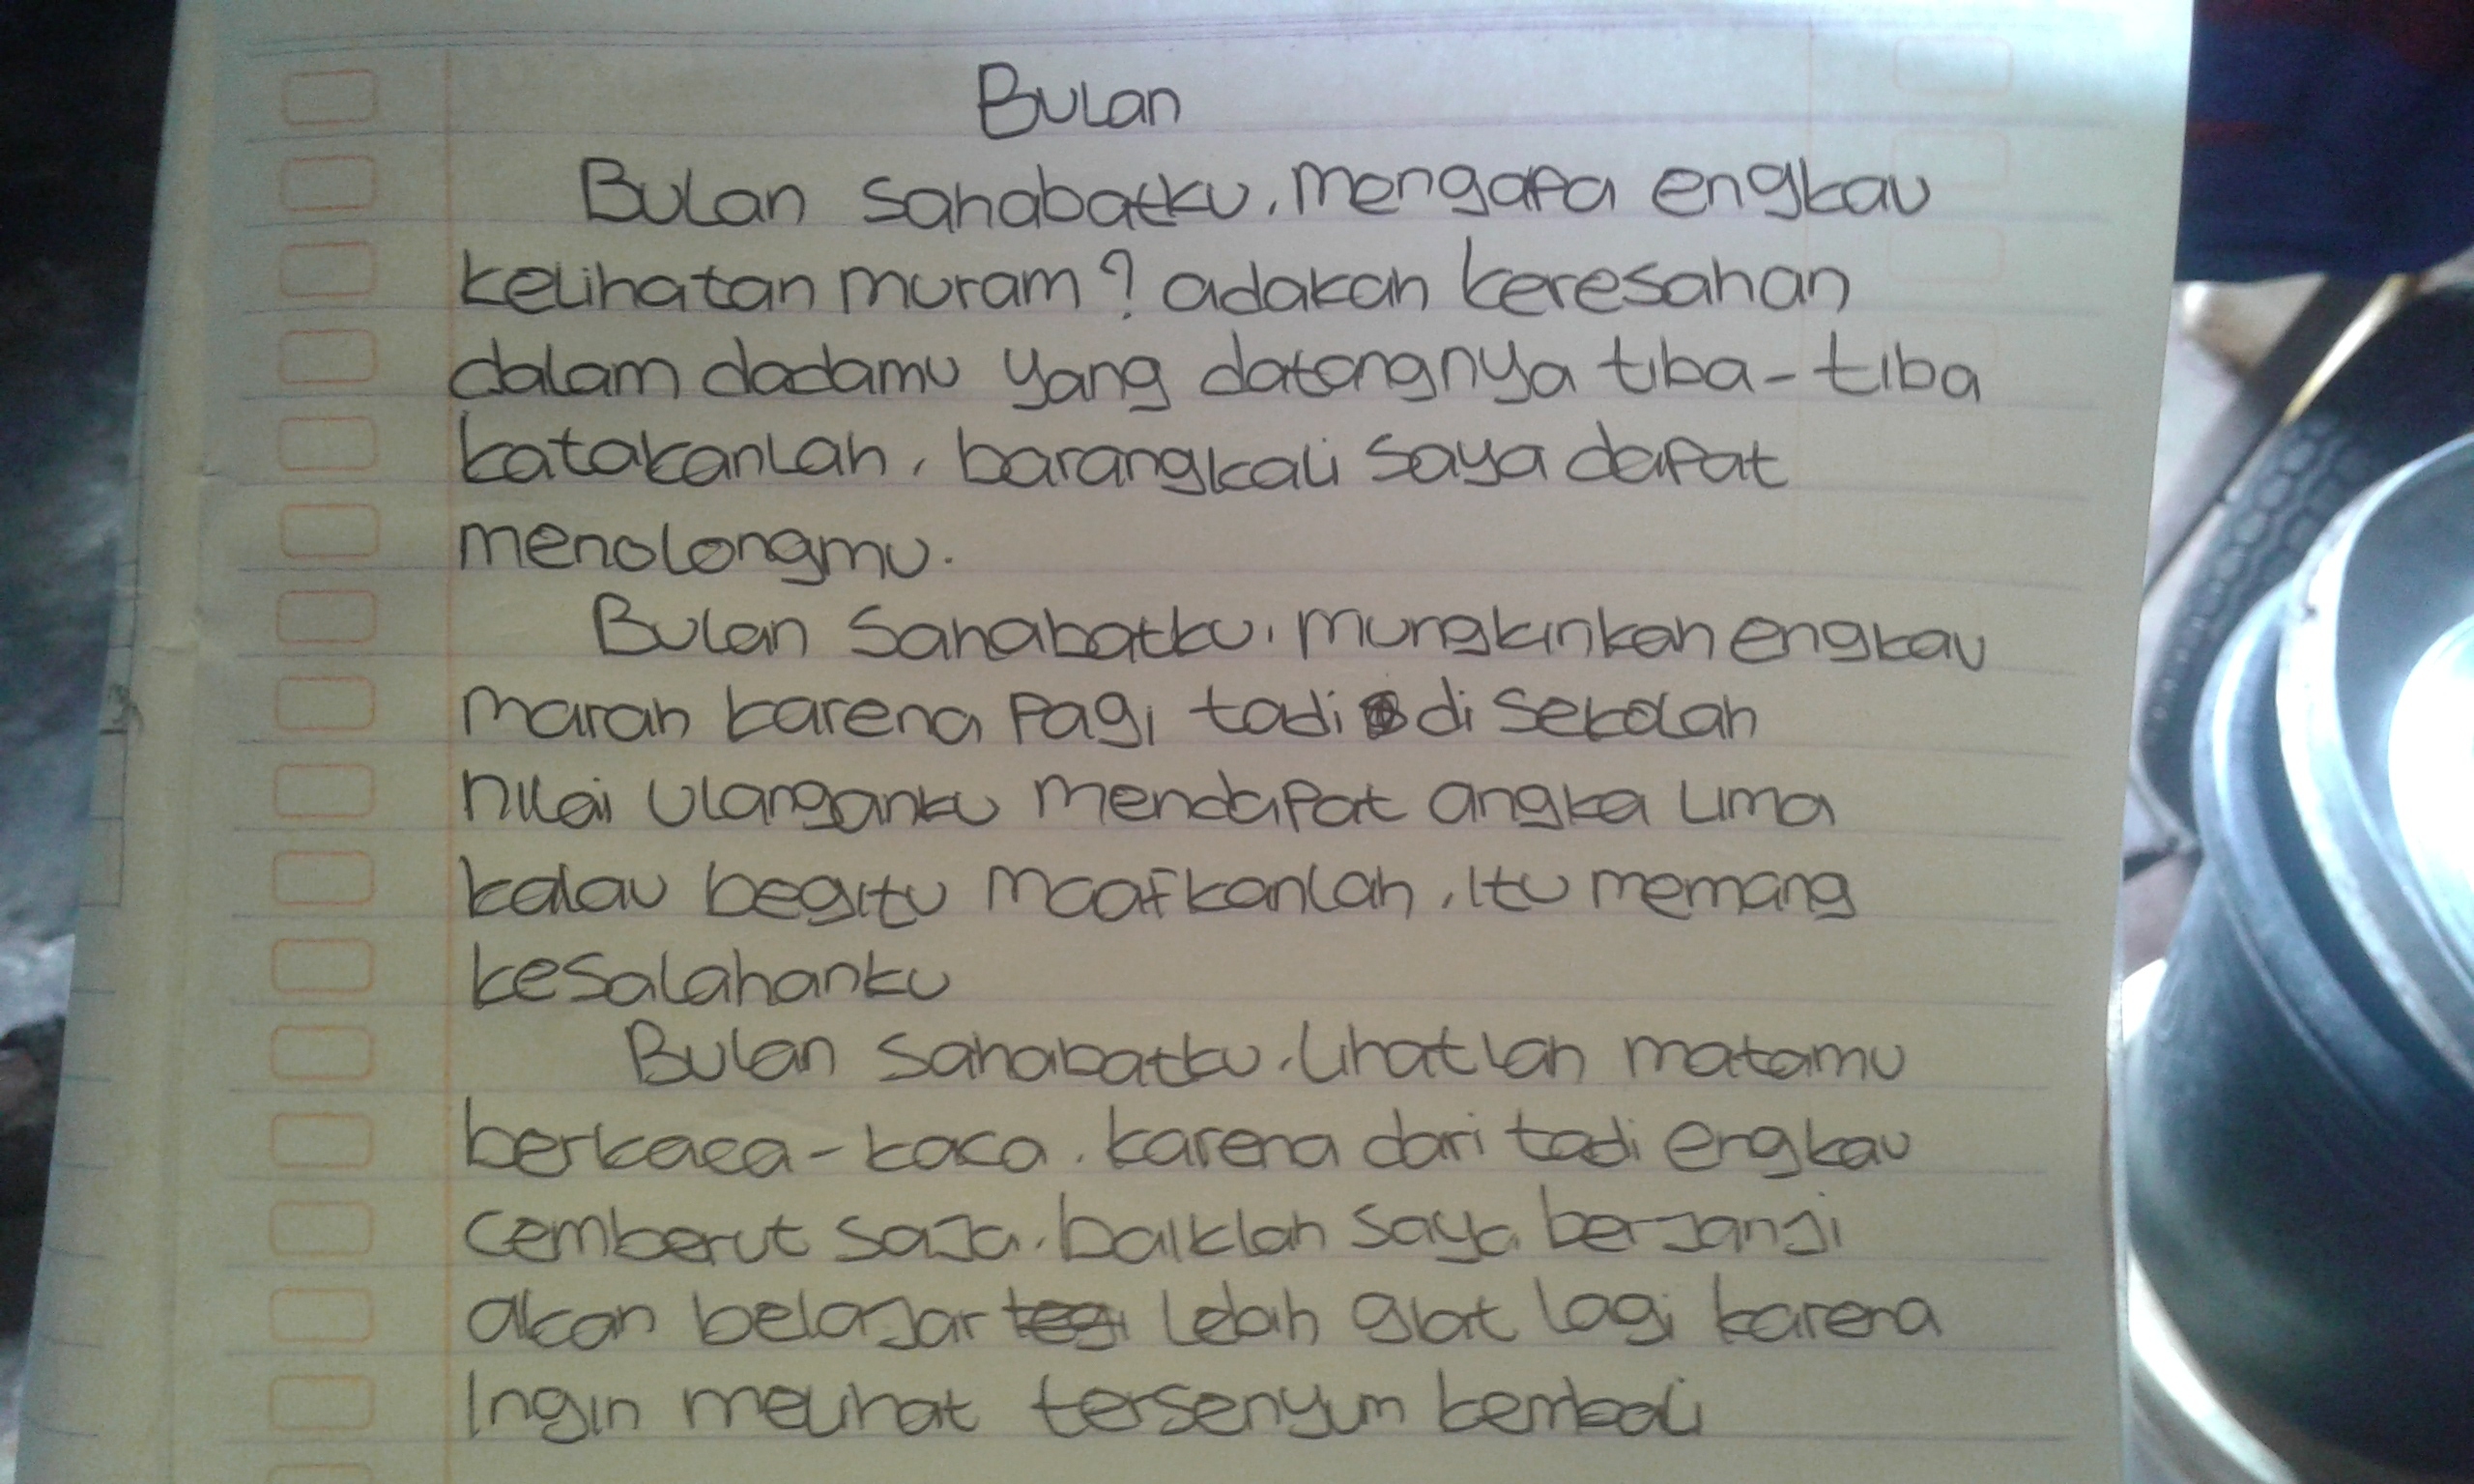 Bulan
Bulan sahabatku, mengapa engkau
kelihatan muram? adakah keresahan
dalam dadamu yang datangnya tiba-tiba
katakanlah, barangkali saya dapat
menolongmu.
Bulan sahabatku, mungkinkah engkau
marah karena pagi tadi di sekolah
nilai ulanganku mendapat angka lima
kalau begitu maafkanlah, itu memang
kesalahanku
Bulan sahabatku, lihatlah matamu
berkaca-kaca. karena dari tadi engkau
cemberut saja. baiklah saya berjanji
akan belajar lebih giat lagi karena
Ingin melihat tersenyum kembali